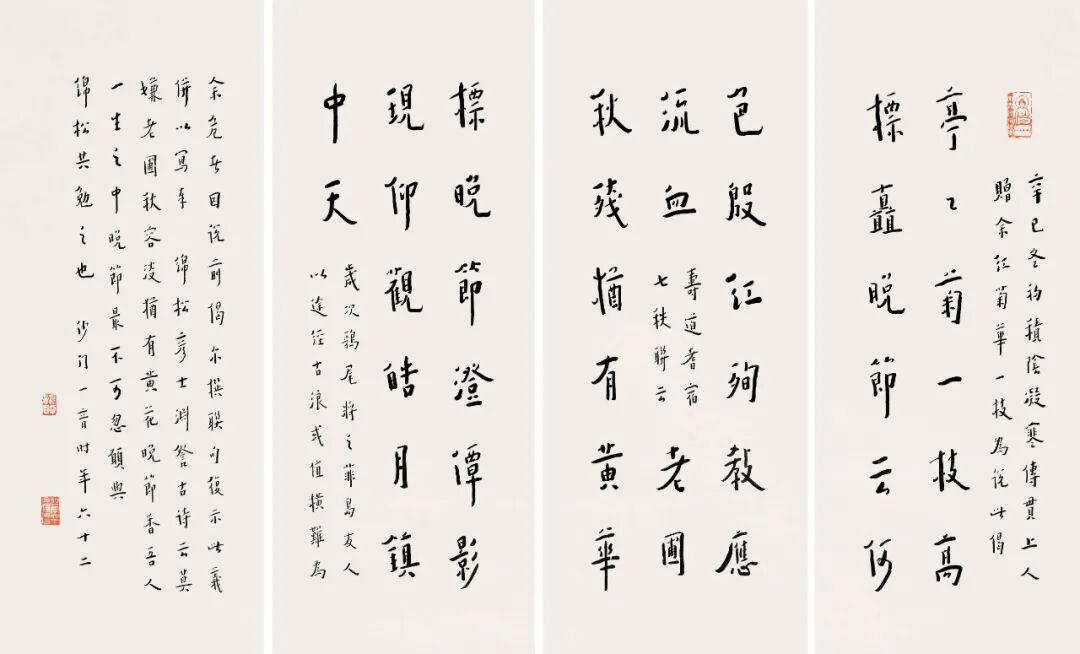 辛巳冬初積陰凝寒傳貫上人
贈余紅菊華一枝為說此偈
亭〻菊一枝高
標矗晚節云何
色殷紅殉教應
流血
壽道耆宿
七秩聯云
老圃
秋殘猶有黃華
標晚節澄潭影
現仰觀皓月鎮
中天
歲次鶉尾將之菲島友人
以途經古浪或值橫難為
余危者因說前偈尔撰聯句復示此義
併以寫奉 綿松彥士淵詧古詩云莫
嫌老圃秋容淡猶有黃花晚節香吾人
一生之中晚節最不可忽願與
綿松共勉之也 沙門一音時年六十二